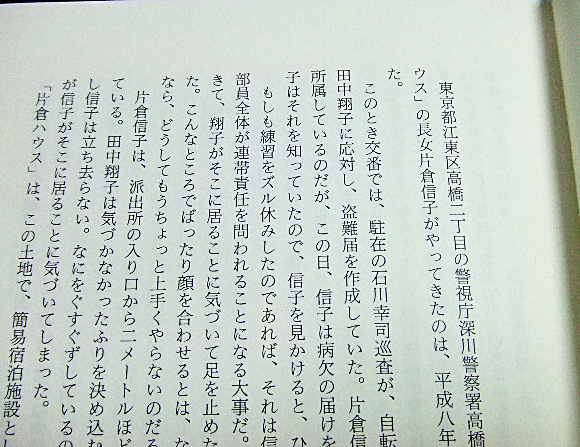 東京都江東区高橋二丁目の警視庁深川警察署高橋
ウス」の長女片倉信子がやってきたのは、平成八年
た。
このとき交番では、駐在の石川幸司巡査が、自転
田中翔子に応対し、盗難届を作成していた。片倉信
所属しているのだが、この日、信子は病欠の届けを
子はそれを知っていたので、信子を見かけると、ひ
もしも練習をズル休みしたのであれば、それは信
部員全体が連帯責任を問われることになる大事だ。
きて、翔子がそこに居ることに気づいて足を止めた
た。こんなところでばったり顔を合わせるとは、な
なら、どうしてもうちょっと上手くやらないのだろ
片倉信子は、派出所の入り口から二メートルほど
ている。田中翔子は気づかなかったふりを決め込む
し信子は立ち去らない。なにをぐずぐずしているの
が信子がそこに居ることに気づいてしまった。
「片倉ハウス」は、この土地で、簡易宿泊施設とし